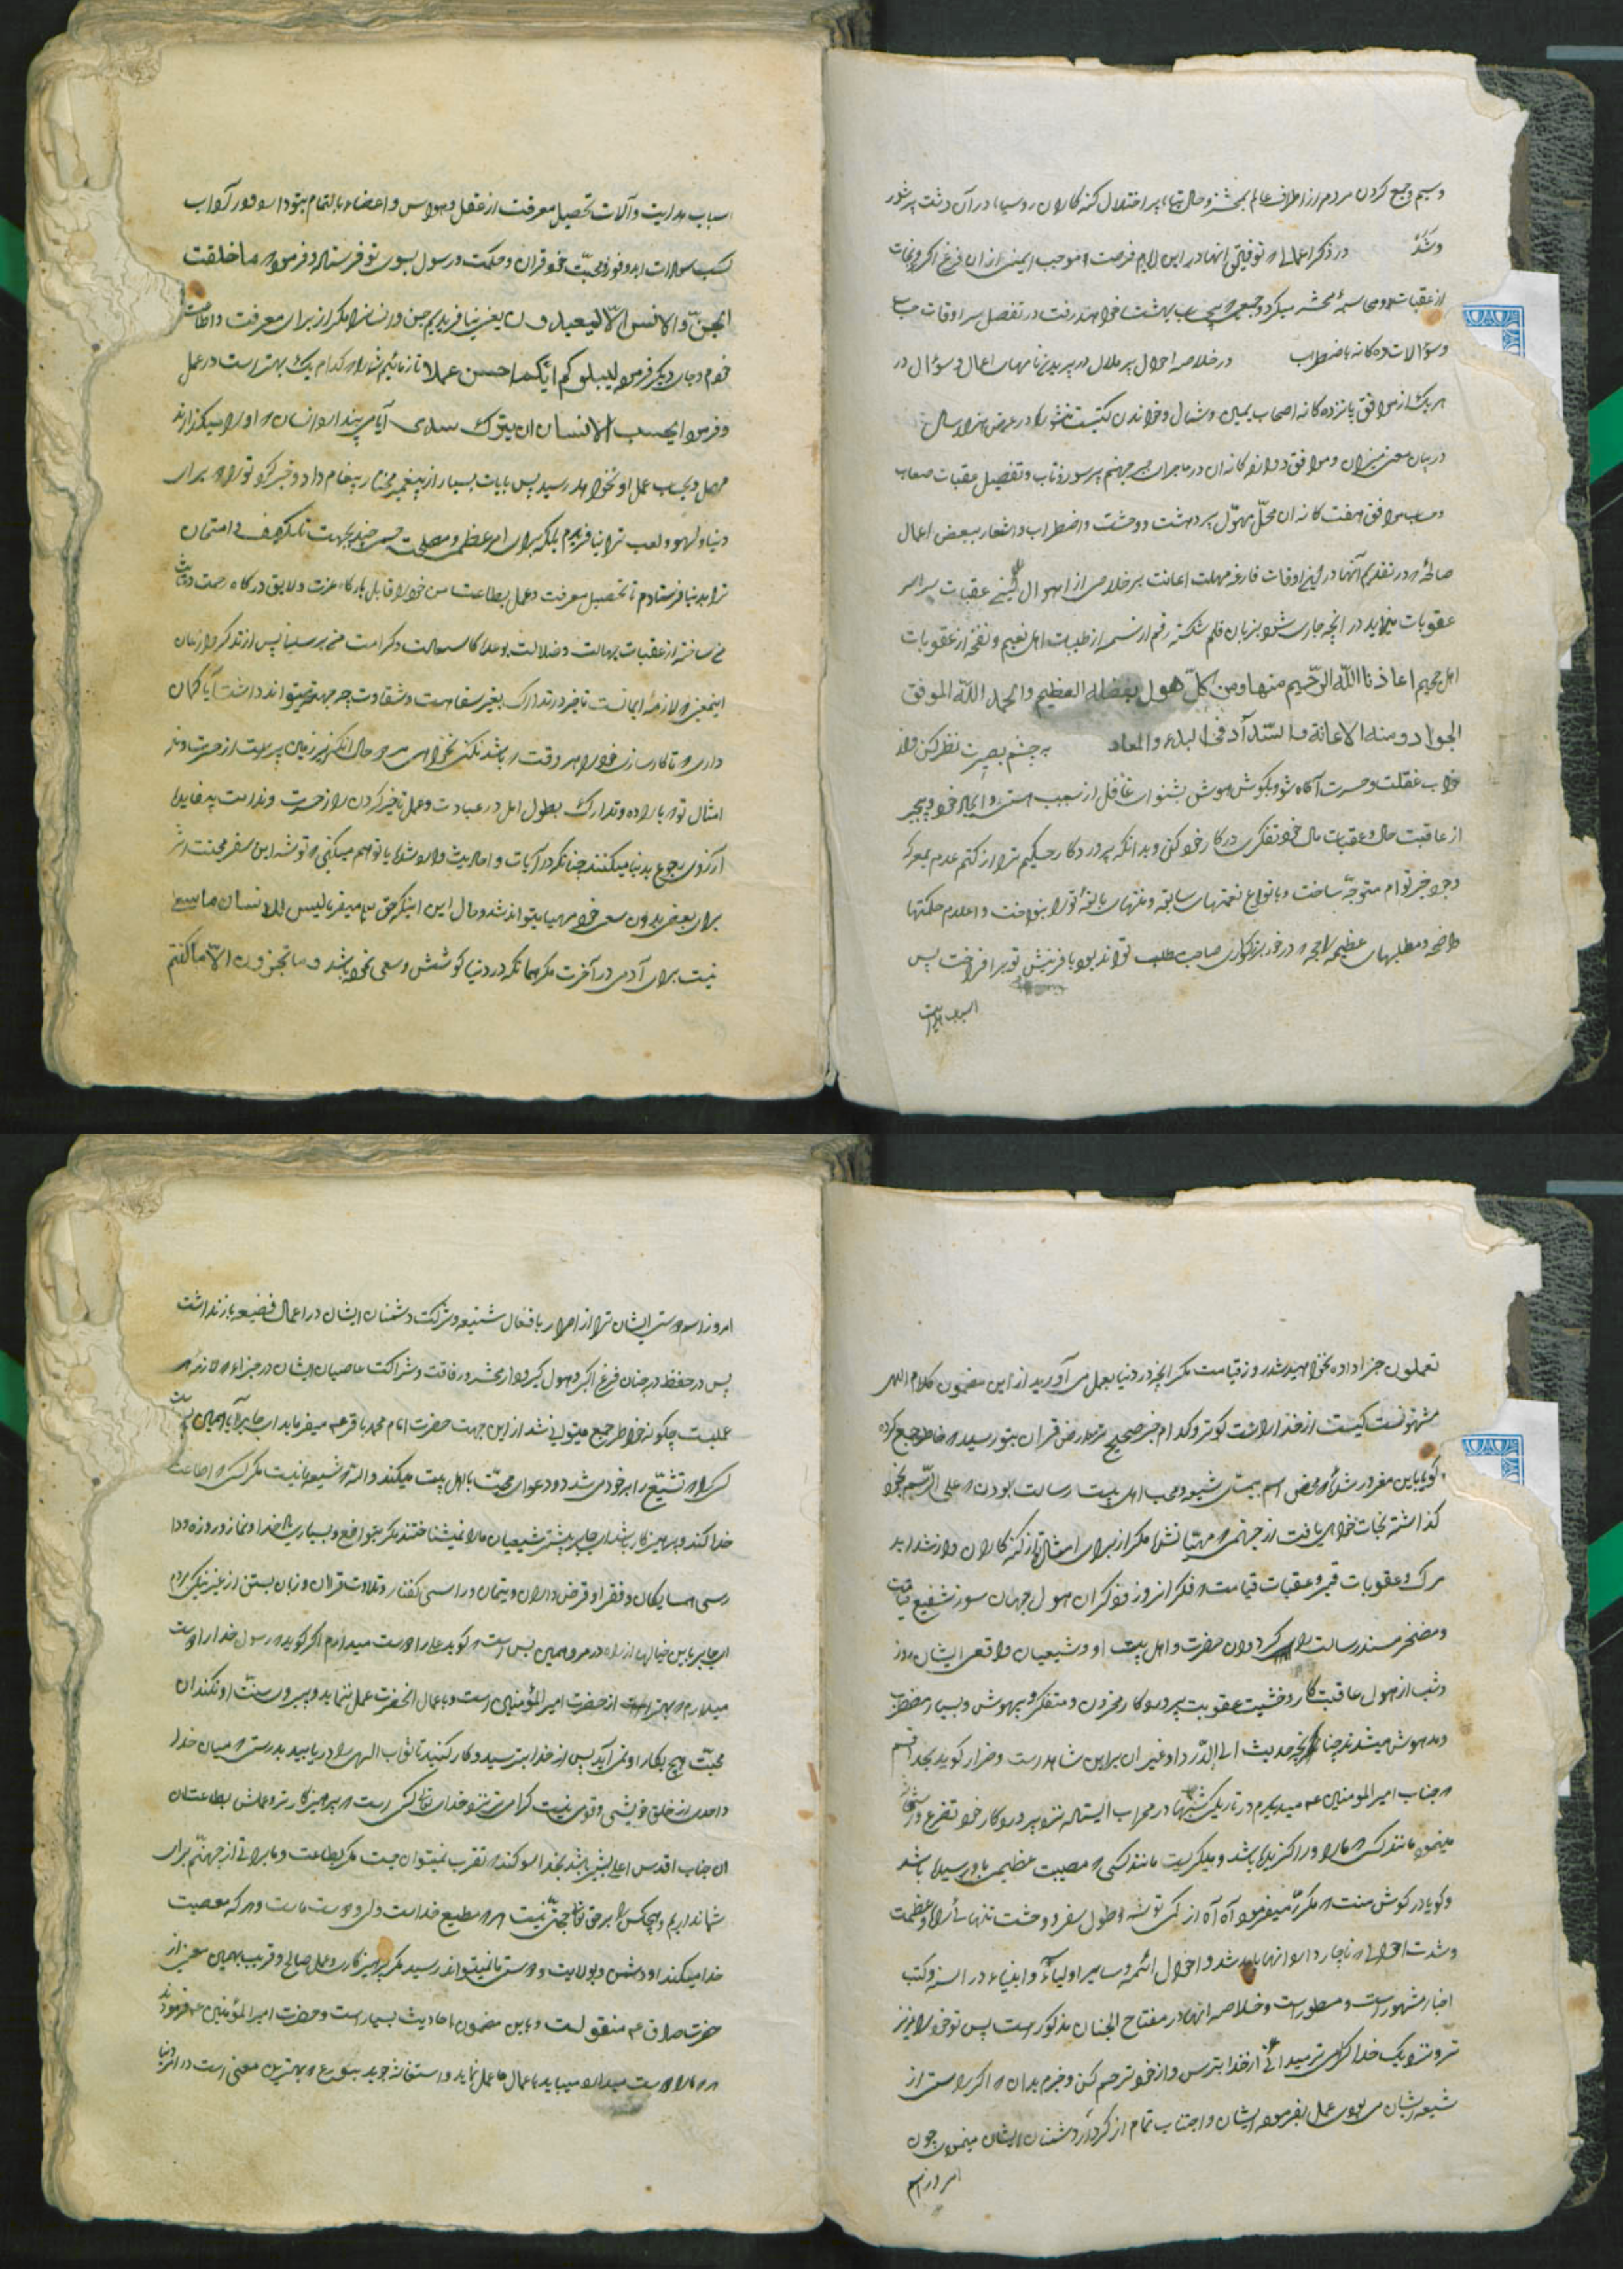 و سیم و جمع کردن مردم از اطراف عالم بمحشر و حال پر اختلال کنه کاران روسیاه در آن دشت پر شور
در ذکر اعمالی که توفیق آنها در این ایام فرصت موجب ایمنی از ان فزع اکبر و نجات
از عقبات محشر میکردد و جمعی که بیحساب ببهشت خواهند رفت و تفصیل سرادقات حساب
و سؤالات ده کانه باضطراب در خلاصه احوال پر ملال در پریدن نامهای اعمال و سؤال در
هر یک از مواقف پانزده کانه اصحاب یمین و شمال و خواندن کتب در عرض هزار سال
در بیان معنی میزان و مواقف دوازده کانه ان در ماجرای جسر جهنم پر سوز و تاب و تفصیل عقبات صعاب
و حساب مواقف هفت کانه ان محلّ مهوّل پر دهشت و وحشت و اضطراب و اشعار ببعض اعمال
صالحه که در تقدیم آنها در اوقات فارغه مهلت اعانت بر خلاصی از اهوال عقبات سراسر
عقوبات مینماید در انچه جاری شود بزبان قلم شکسته رقم از طیبات اهل نعیم و نفحه از عقوبات
اهل جحیم اعاذنا اللّه الرّحیم منها و من کلّ هول بفضله العظیم و الحمد اللّه الموفق
الجواد و منه الاعانة و السّداد فی البدء و المعاد به چشم بصیرت نظر کن و از
خواب غفلت و حسرت آکاه شو و بکوش هوش بشنو ای غافل از سبب هستی و ایجاد خود و بیخبر
از عاقبت حال و عقبات مال خود تفکری در کار خود کنی و بدانکه پروردکار حکیم ترا از کتم عدم بمعرکه
وجود خیر توام متوجّه ساخت و بانواع نعمتهای سابقه و منتهای بالغه تو را بنواخت و اعلام حکمتها
واضحه و مطلبهای عظیمه لایحه که در خور بزرکواری صاحب مطلب تواند بود بافرینش تو بر افراخت پس
اسباب هدایت
اسباب هدایت و آلات تحصیل معرفت از عقل و هوش و حواس و اعضاء بالتمام بتو داد و در آداب
کسب سعادات ابد و فوز محبّت خود قران و حکمت و رسول بسوی تو فرستاده و فرموده ما خلقت
الجنّ و الانس الّا لیعبدون یعنی نیافریدیم جن و انسانرا مکر از برای معرفت و اطاعت
خودم و جای دیکر فرموده لیبلوکم ایّکم احسن عملا تا آزمائیم شما را که کدام یک بهتر است در عمل
و فرموده ایحسب الانسان ان یترک سدی آیا می پندارد انسان که او را میکذارند
مهمل و بحساب عمل او نخواهد رسید پس بایات بسیار از پیغمبر مختار پیغام داد و خبر کرد تو را که برای
دنیا و لهو و لعب ترا نیافریدم بلکه برای امر عظیم و مصلحت چند بجهت تکلیف و امتحان
ترا بدنیا فرستادم تا تحصیل معرفت و عمل بطاعت من خود را قابل بارکاه عزت و لایق درکاه رحمت
من ساخته از عقبات جهالت و ضلالت کرامت من برسی پس از تذکر و اذعان
اینمعنی که لازمه ایمانست تاخیر در تدارک بغیر سفاهت و شقاوت چه میتواند داشت آیا کمان
داری که تا کارسازی خود را هر وقت باشد نکنی نخواهی مرد حال انکه زیر زمین پر است از حسرت و ندامت
امثال تو که باراده و تدارک بطول امل در عبادت و عمل تاخیر کردن را از حسرت و ندامت بیفایده
آرزوی رجوع بدنیا میکنند چنانکه در آیات و احادیث وارد شده یا توهم میکنی که توشه این سفر محنت اثر
برای بعضی بدون سعی خود مهیا میتواند شد و حال این اینکه حق تع میفرماید لیس للانسان ما سعی
نیست برای آدمی در آخرت مکر همانکه در دنیا کوشش و سعی نموده باشد و ما تجزون الّا ما کنتم
تعملون جزا داده نخواهید شد روز قیامت مکر انچه در دنیا بعمل می آورید از این مضمون کلام الهی
مشهورتست کیست از خدا راست کوتر و کدام خبر صحیح تر بعرض قران بتو رسیده که خاطر جمع کرده
کویا باین مغرور شده که محض اسم شیعه و محب اهل بیت رسالت بودن علی الرّسم بخود
کذاشته نجات خواهی یافت از جهنمی که مهیّا نشده مکر از برای امثال تو از کنه کاران و از شداید
مرک و عقوبات قبر و عقبات قیامت که فکر انروز و ذکر ان هول جهان سوز شفیع قیامت
و مفخر مسند رسالت را کردد و ان حضرت و اهل بیت او و شیعیان واقعی ایشان روز
و شب از هول عاقبت کار و خشیت عقوبت پروردکار محزون و متفکر و بیهوش و بسیار مضطرب
و مدهوش میشدند چنانچه حدیث ابی الدّرداء و غیر ان براین شاهد است و ضرار کوید بخدا قسم
که جناب امیر المومنین ع میدیدم در تاریکی شبها در محراب ایستاده نزد پروردکار خود تضرع و
مینمود مانند کسی که مار او را کزیده باشد و میکریست مانند کسی که مصیبت عظیمی باو رسیده باشد
و کویا در کوش منست که مکرّر میفرمود آه آه از کمی توشه و طول سفر و وحشت تنهائی راه و عظمت
و شدت احوالی که ناچار وارد انها باید شد و احوال ائمه و سایر اولیاء و انبیاء در السنه و کتب
اخبار مشهور است و مسطور است و خلاصه انها در مفتاح الجنان مذکور است پس تو خود را عزیز
تر و نزدیک خدا کرامی تر میدانی از خدا بترس و از خود ترحم کن و جزم بدان که اگر راستی از
شیعه ایشان می بودی عمل بفرموده ایشان و اجتناب تمام از کردار دشمنان ایشان مینمودی چون
امروز اسم
امروز اسم دوستی ایشان ترا از اصرار بافعال شنیعه و شرکت دشمنان ایشان در اعمال فضیعه باز نداشت
پس در حفظ در چنان فزع اکبر و هول کبر وی در محشر و رفاقت و شراکت عاصیان ایشان در جزاء که لازمه
عملست چکونه خواطر جمع میتوانی شد از این جهت حضرت امام محمد باقر ع میفرماید ای جابر آیا همین بس است
کسی را که تشیّع را بر خود می بندد و دعوای محبّت با اهل بیت میکند والله که شیعه ما نیست مکر کسی که اطاعت
خدا کند و پرهیز کار باشد ای جابر پیشتر شیعیان ما را نمیشناختند مکر بتواضع و بسیاری یاد خدا و نماز و روزه و دا
رسی همسایکان و فقرا و قرض داران و یتیمان و راستی کفتار و تلاوت قران و زبان بستن از غیر نیکی مردم
ای جابر باین خیالها از راه در مرو همین بس است که کوید علی را دوست میدارم اکر کوید که رسول خدا را دوست
میدارم که بهتر است از حضرت امیر المؤمنین است و باعمال انحضرت عمل ننماید و پیروی سنّت او نکند ان
محبّت هیچ بکار او نمی آید پس از خدا بترسید و کار کنید تا ثواب الهی را دریابید بدرستی که میان خدا
و احدی از خلق خویشی و قومی نیست کرامی تر نزد خدای تعالی کسی است که پرهیز کارتر و عملش بطاعت
ان جناب اقدس اعلی بیشتر باشد بخدا سوکند که تقرب نمیتوان جست مکر بطاعت و ما براتی از جهنّم برای
شما نداریم و هیچکس را بر حق تعالی حجتّی نیست هر که مطیع خداست ولی و دوست ماست و هر که معصیت
خدا میکند او دشمن و بولایت و دوستی ما نمیتواند رسید مکر بپرهیز کاری و عمل صالح و قریب بهمین معنی از
حضرت صادق ع منقولست و باین مضمون احادیث بسیار است و حضرت امیر المؤمنین ع فرمودند
هر که ما را دوست میدارد میباید باعمال ما عمل نماید و استعانت جوید بورع که بهترین معینی است در امر دنیا